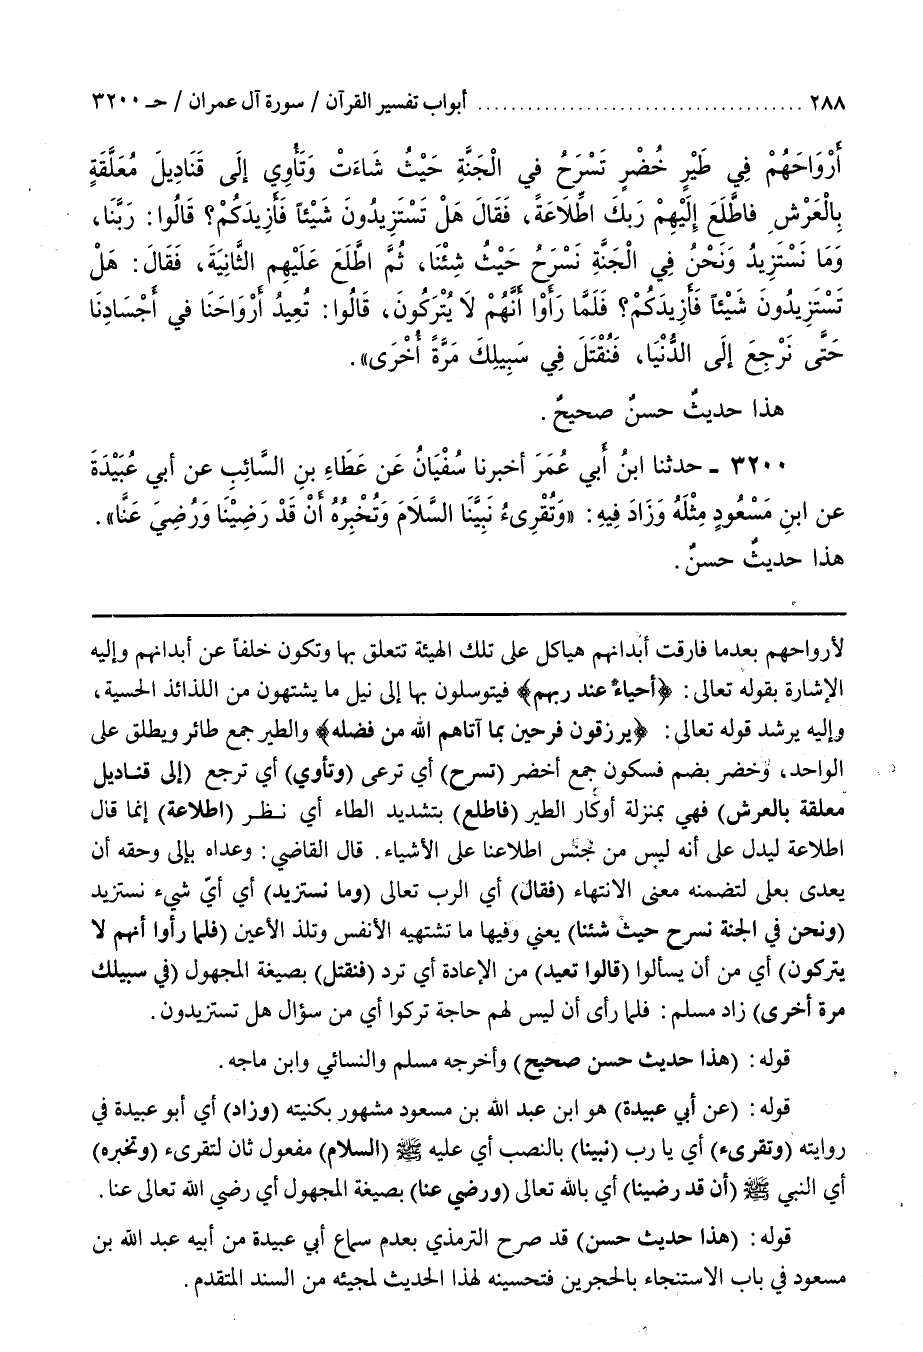 ٢٨٨ ..................................... أبواب تفسير القرآن / سورة آل عمران / حـ ٣٢٠٠
أَرْوَاحَهُمْ فِي طَيْرٍ خُضْرٍ تَسْرَحُ في الْجَنَّةِ حَيْثُ شَاءَتْ وَتَأْوِي إلَى قَنَادِيلَ مُعَلَّقَةٍ
بِالْعَرْشِ فاطَّلَعَ إِلَيْهِمْ رَبكَ اطِّلَاعَةً، فَقَالَ هَلْ تَسْتَزِيدُونَ شَيْئاً فَأَزِيدَكُمْ؟ قَالُوا: رَبَّنَا،
وَمَا نَسْتَزِيدُ وَنَحْنُ فِي الْجَنَّةِ نَسْرَحُ حَيْثُ شِئْنَا، ثُمَّ اطَّلَعَ عَلَيْهِم الثَّانِيَةَ، فَقَالَ: هَلْ
تَسْتَزِيدُونَ شَيْئاً فَأَزِيدَكُمْ؟ فَلَمَّا رَأَوْا أَنَّهُمْ لَا يُتْرَكُونَ، قَالُوا: تُعِيدُ أَرْوَاحَنَا في أَجْسَادِنَا
حَتَّى نَرْجِعَ إلَى الدُّنْيَا، فَنُقْتَلَ فِي سَبِيلِكَ مَرَّةً أُخْرَى».
هذا حديثٌ حسنٌ صحيحٌ.
٣٢٠٠ ـ حدثنا ابنُ أَبي عُمَرَ أخبرنا سُفْيَانُ عَن عَطَاءِ بنِ السَّائِبِ عن أبي عُبَيْدَةَ
عن ابنِ مَسْعُودٍ مِثْلَهُ وَزَادَ فِيهِ: «وَتُقْرِىءُ نَبِيَّنَا السَّلَامَ وَتُخْبِرُهُ أَنْ قَدْ رَضِيْنَا وَرُضِيَ عَنَّا».
هذا حديثٌ حسنٌ.
لأرواحهم بعدما فارقت أبدانهم هياكل على تلك الهيئة تتعلق بها وتكون خلفاً عن أبدانهم وإليه
الإشارة بقوله تعالى: ﴿أحياءٌ عند ربهم﴾ فيتوسلون بها إلى نيل ما يشتهون من اللذائذ الحسية،
وإليه يرشد قوله تعالى: ﴿يرزقون فرحين بما آتاهم الله من فضله﴾ والطير جمع طائر ويطلق على
الواحد، وخضر بضم فسكون جمع أخضر (تسرح) أي ترعى (وتأوي) أي ترجع (إلى قناديل
معلقة بالعرش) فهي بمنزلة أوكار الطير (فاطلع) بتشديد الطاء أي نظر (اطلاعة) إنما قال
اطلاعة ليدل على أنه ليس من جنس اطلاعنا على الأشياء. قال القاضي: وعداه بإلى وحقه أن
يعدى بعلى لتضمنه معنى الانتهاء (فقال) أي الرب تعالى (وما نستزيد) أي أيّ شيء نستزيد
(ونحن في الجنة نسرح حيث شئنا) يعني وفيها ما تشتهيه الأنفس وتلذ الأعين (فلما رأوا أنهم لا
يتركون) أي من أن يسألوا (قالوا تعيد) من الإعادة أي ترد (فنقتل) بصيغة المجهول (في سبيلك
مرة أخرى) زاد مسلم: فلما رأى أن ليس لهم حاجة تركوا أي من سؤال هل تستزيدون.
قوله: (هذا حديث حسن صحيح) وأخرجه مسلم والنسائي وابن ماجه.
قوله: (عن أبي عبيدة) هو ابن عبد الله بن مسعود مشهور بكنيته (وزاد) أي أبو عبيدة في
روايته (وتقرىء) أي يا رب (نبينا) بالنصب أي عليه ﷺ (السلام) مفعول ثان لتقرىء (وتخبره)
أي النبي ﷺ (أن قد رضينا) أي بالله تعالى (ورضي عنا) بصيغة المجهول أي رضي الله تعالى عنا.
قوله: (هذا حديث حسن) قد صرح الترمذي بعدم سماع أبي عبيدة من أبيه عبد الله بن
مسعود في باب الاستنجاء بالحجرين فتحسينه لهذا الحديث لمجيئه من السند المتقدم.